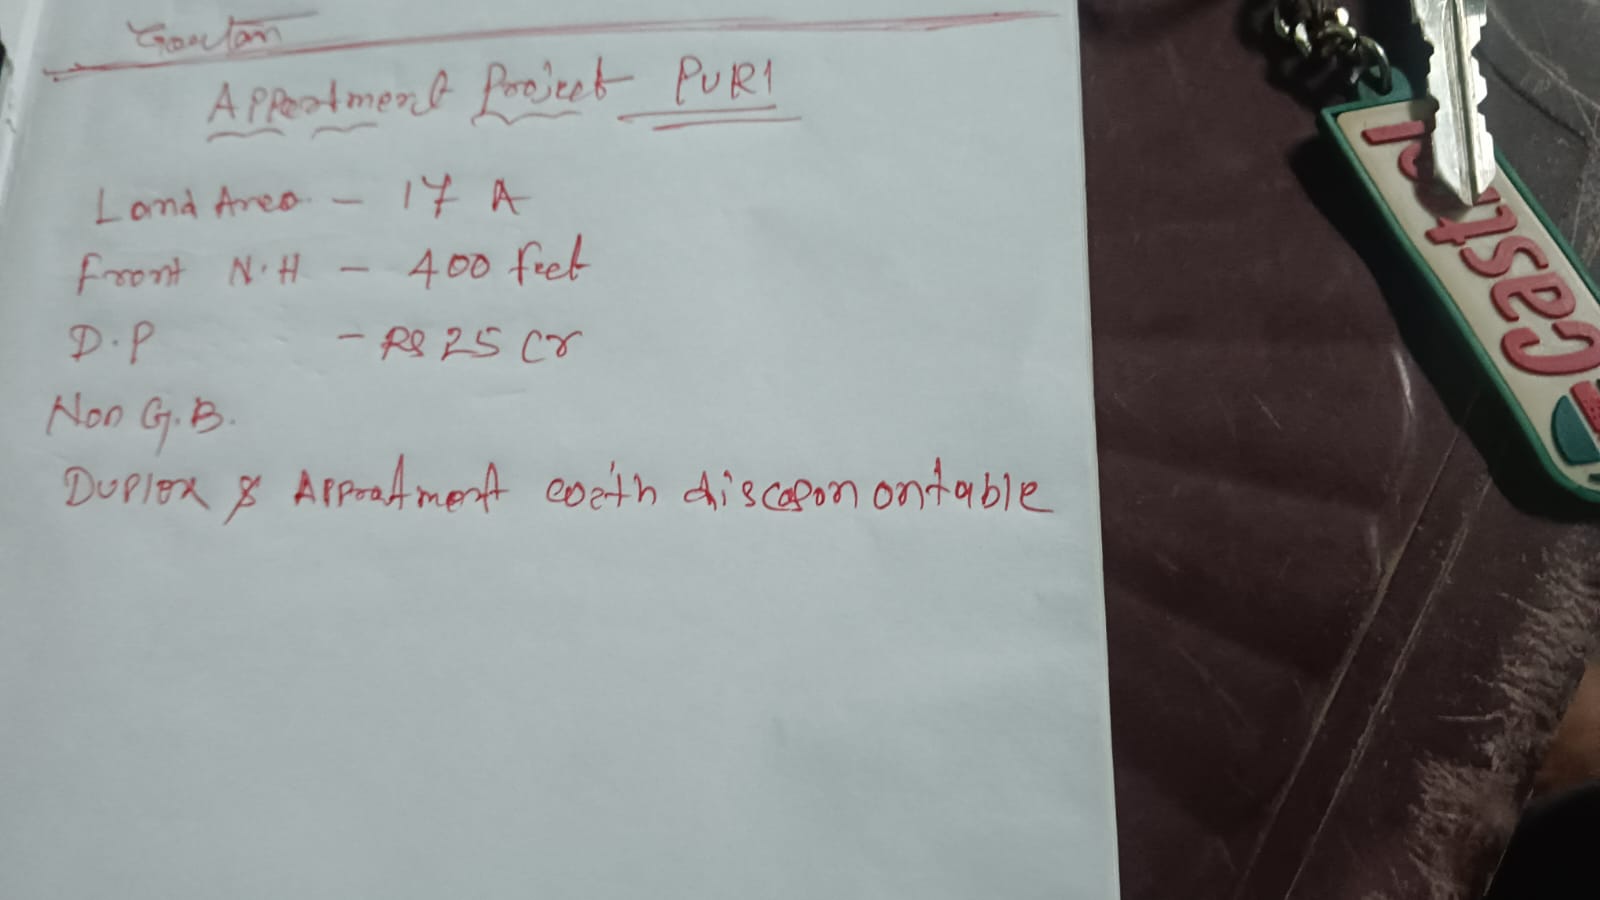 Goutam
Appartment Project PURI
Land Area - 17 A
Front N.H - 400 feet
D.P - Rs 25 Cr
Non G.B.
Duplex & Appratment with
Castrol